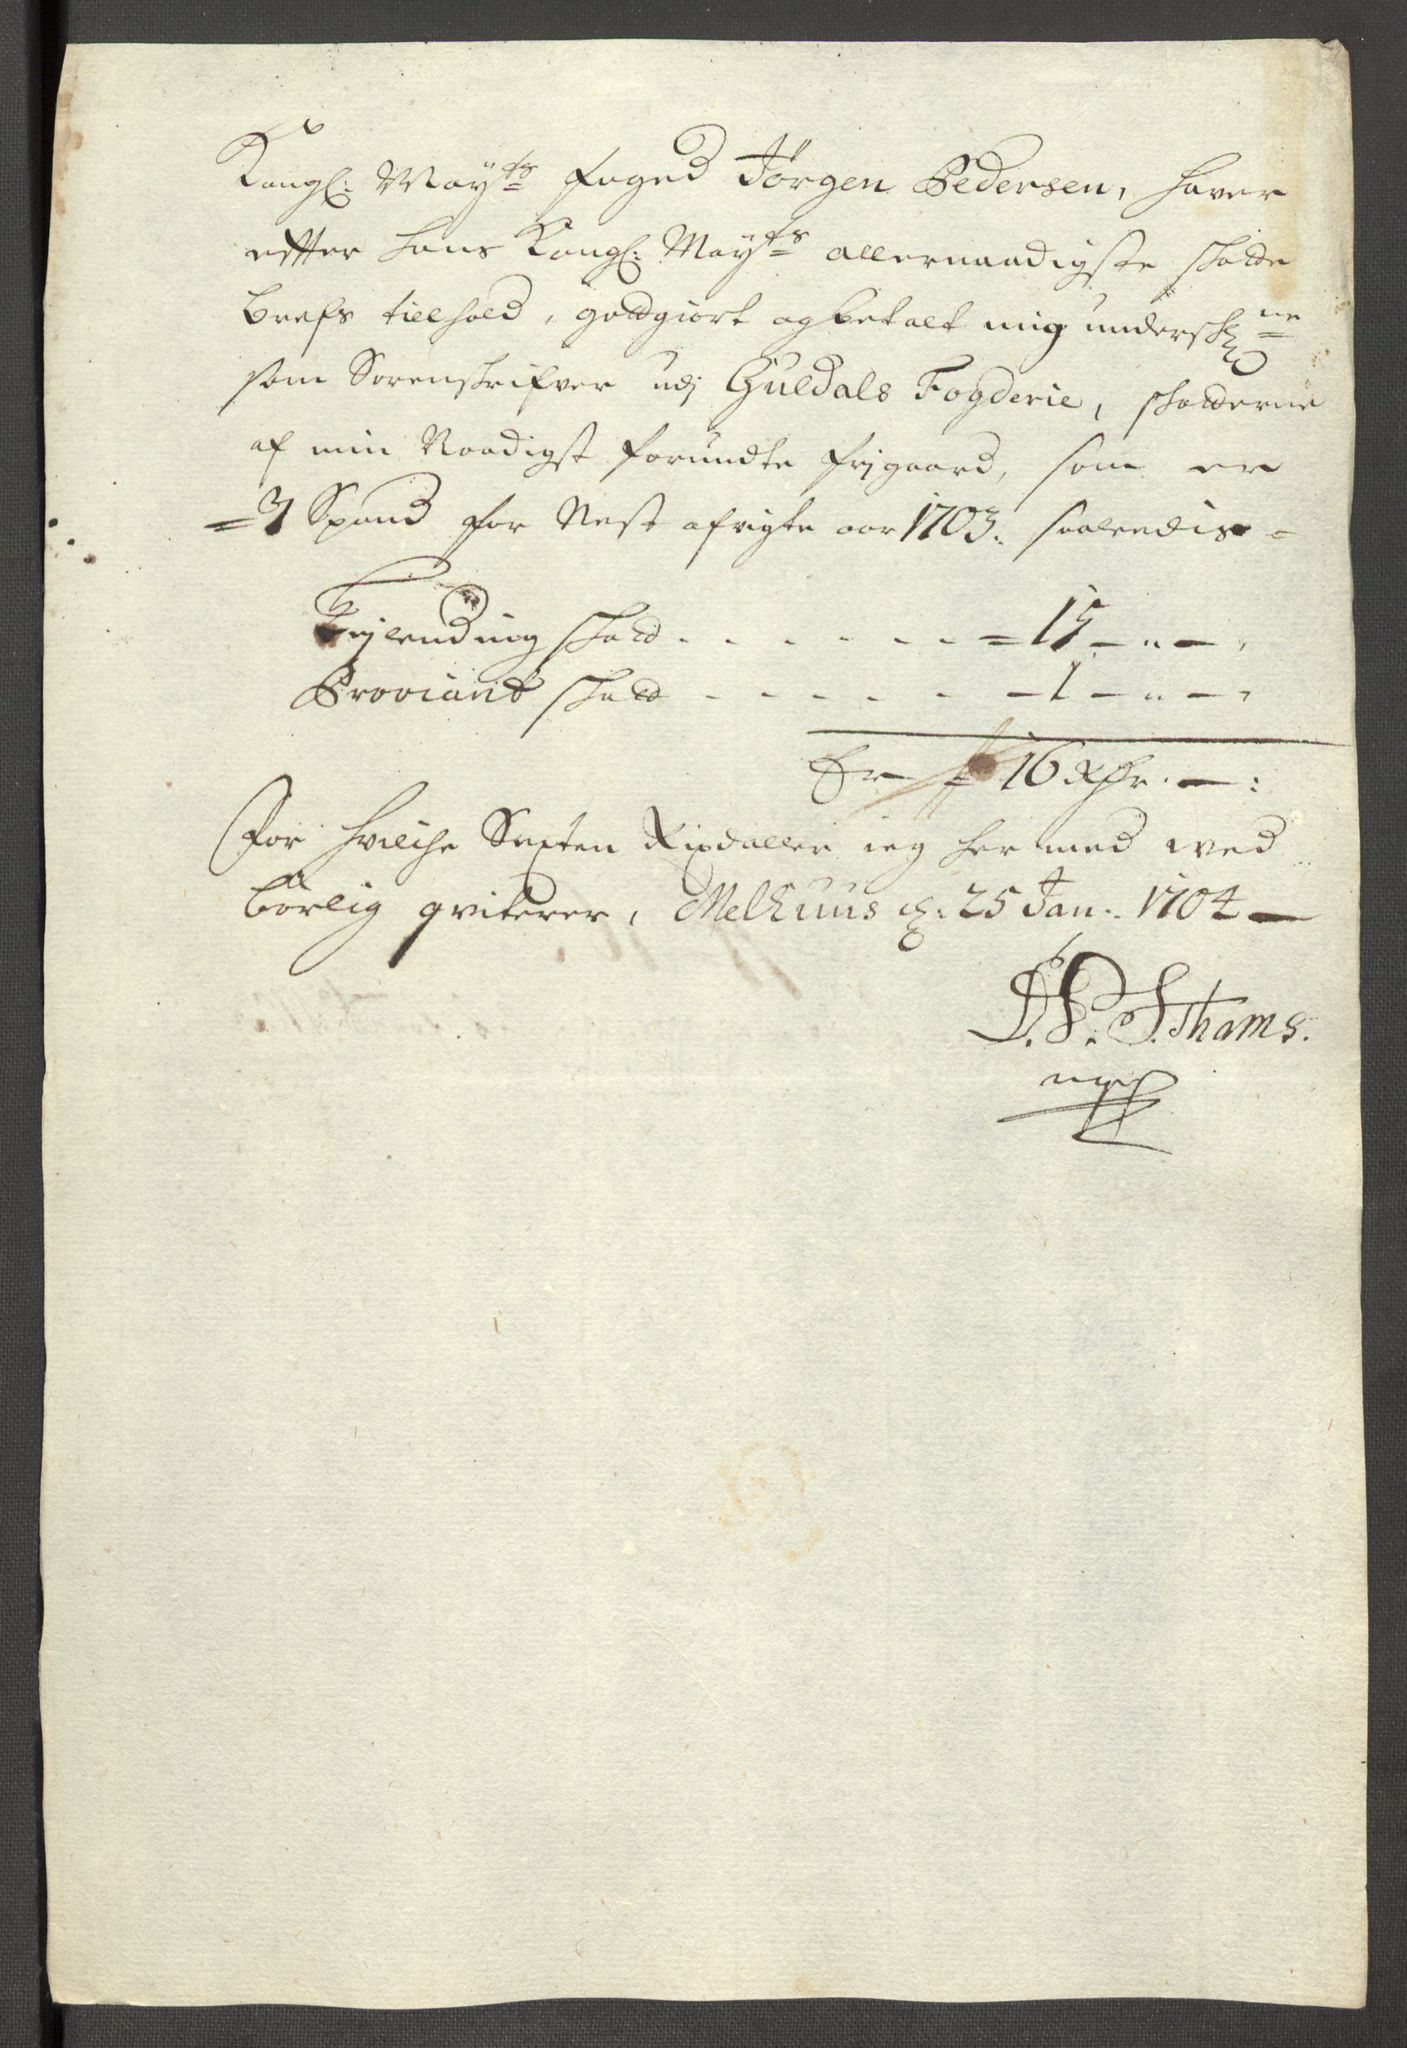 Kongl: May:ts foged Jörgen Pedersen, hafver
efter hans Kongl: May:ts allernaadigste skatte
brefs tillhold, godgiort og betalt mig undersch:ne
som Sorenskrifver udj Guldals Fogderie, skatterne
af min Naadigst forundte frjgaard, som er
= 3 Spand for Nest afvigte aar 1703. saaledis -
schatt . . . . . . . = 15 — " — ,
Proviant schatt - - - - - - — 1 — " — ,
Er = 16 Rdr. — :
For hvilche Sexten Rixdaller ieg her med ved
börlig qviterer, Melhuus d: 25 Jan: 1704 —
S. Thams.
mpp